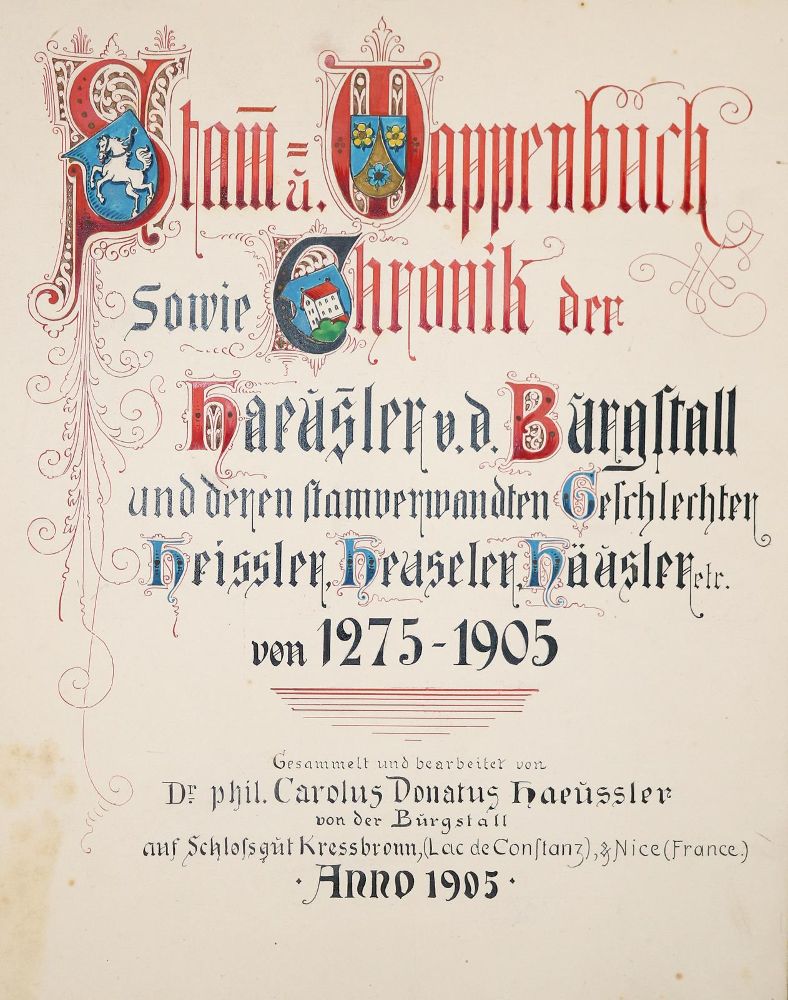 Stam̅= u. Wappenbuch
Sowie Chronik der
Haeus̅ler v. d. Burgſtall
und deren ſtamverwandten Geſchlechter
Heissler, Heuseler, Häusler etc.
von 1275-1905
Gesammelt und bearbeitet von
Dr. phil. Carolus Donatus Haeussler
von der Burgstall
auf Schloſsgut Kressbronn, (Lac de Conſtanz), & Nice (France.)
· ANNO 1905 ·